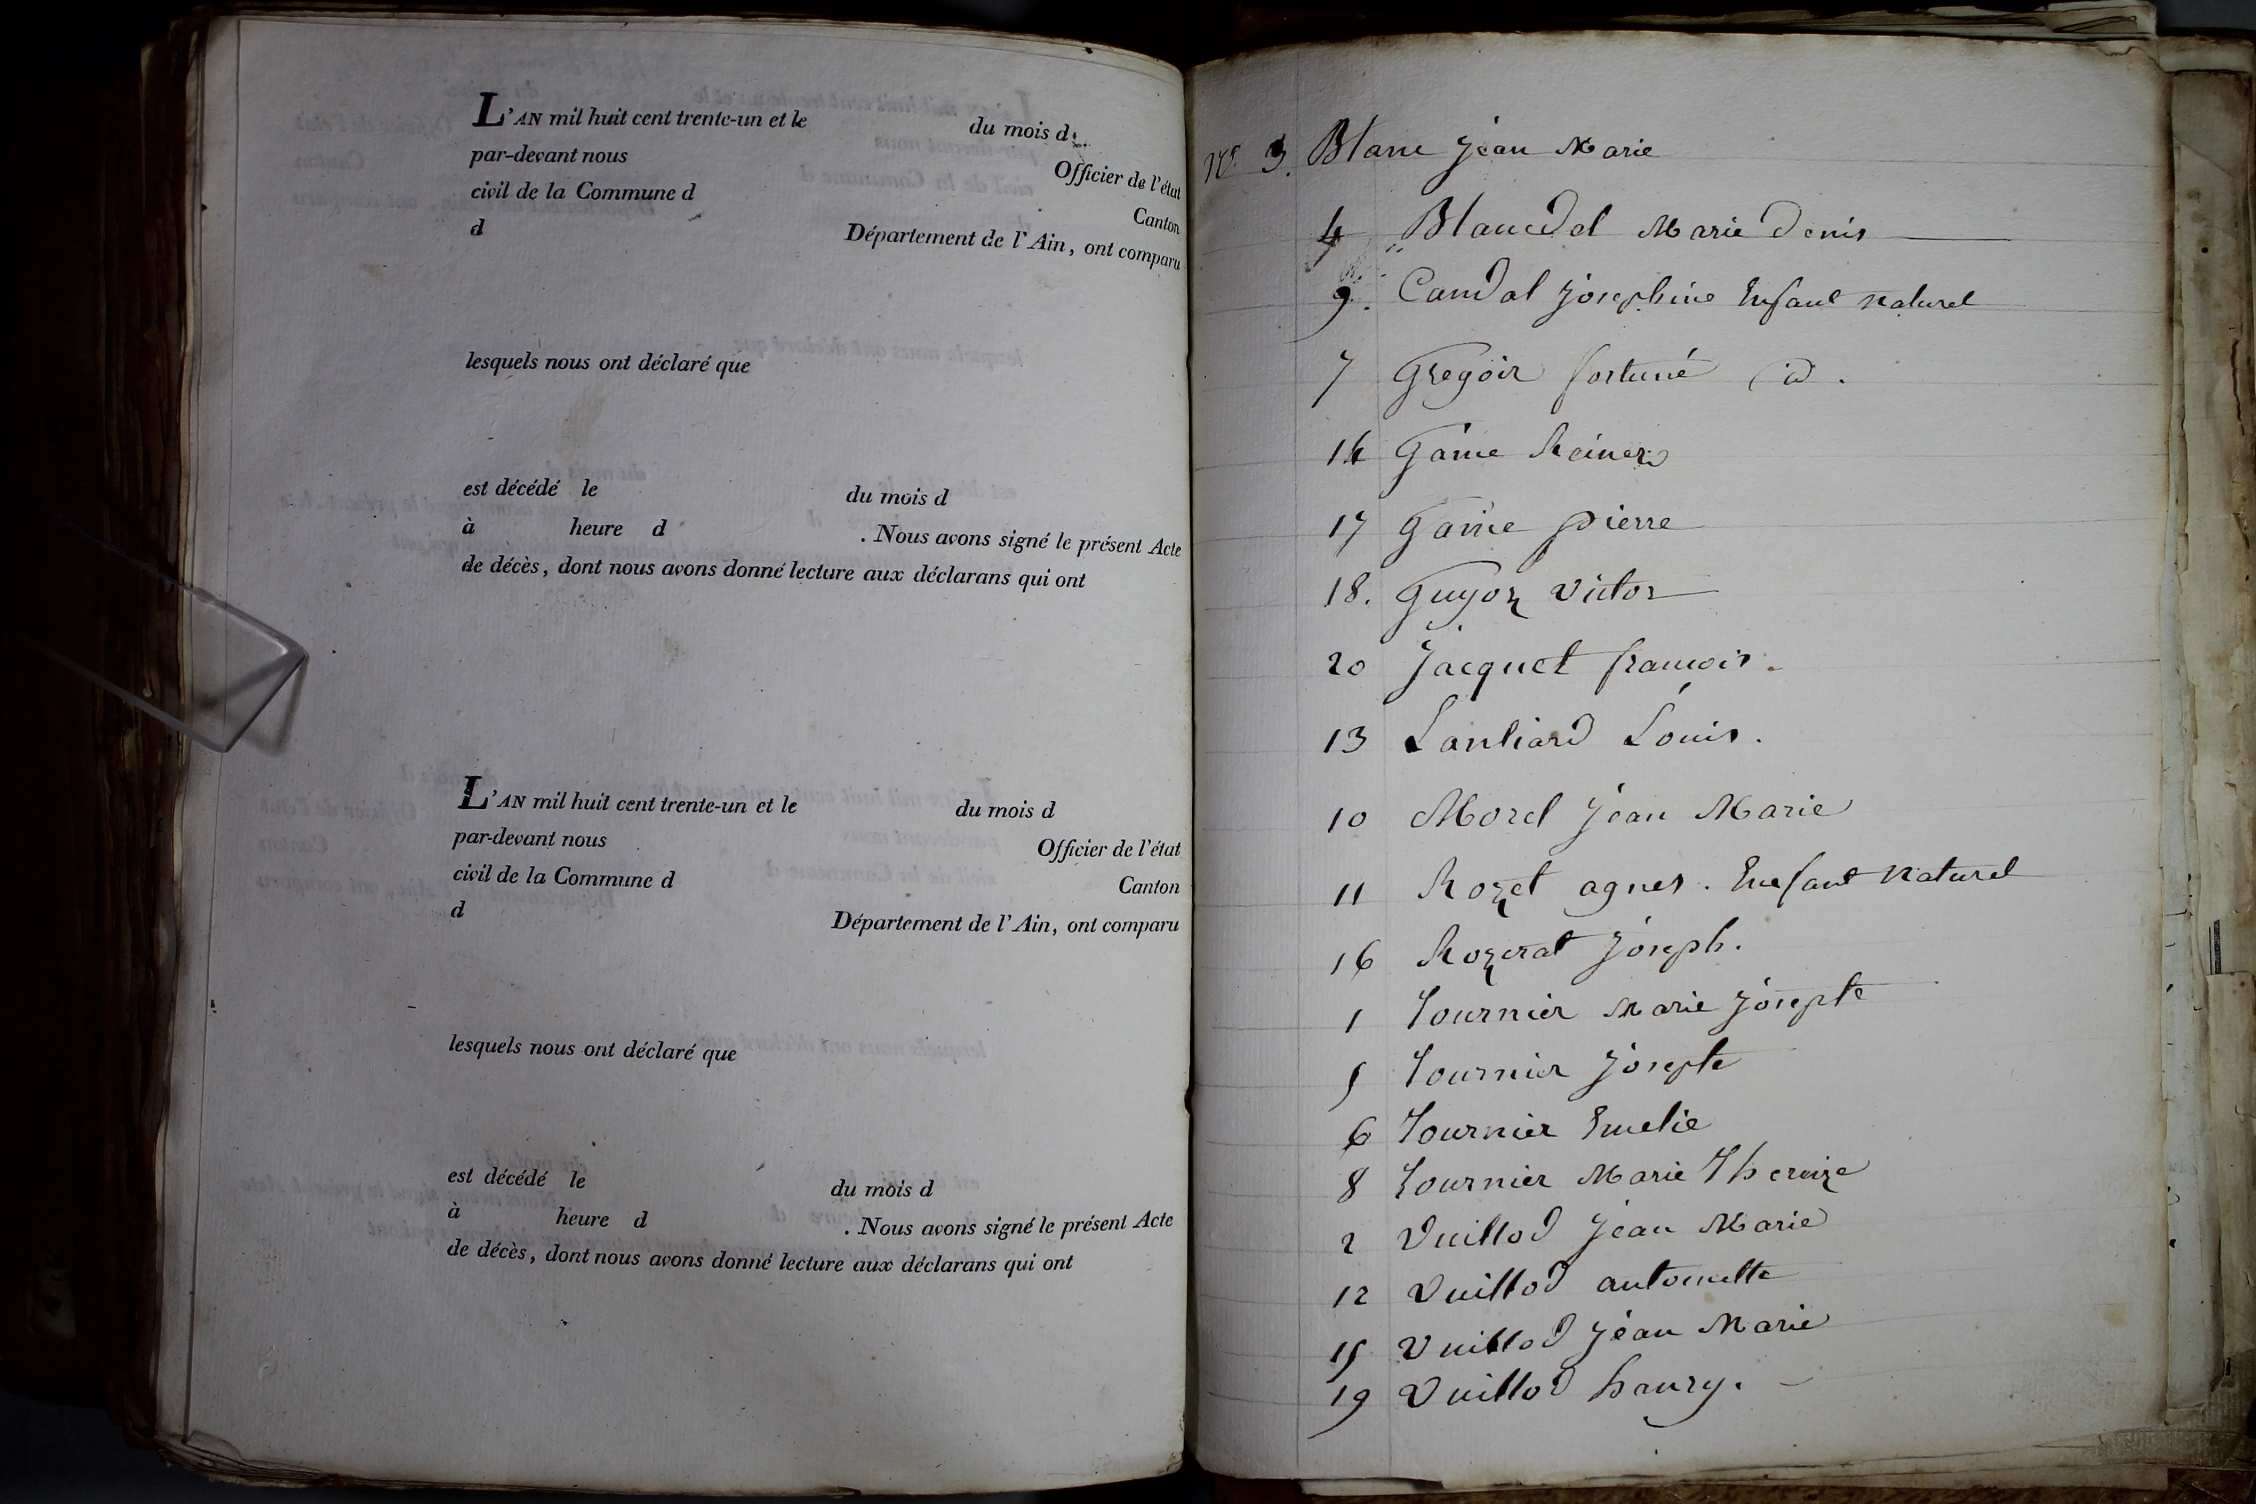 L'AN mil huit cent trente-un et le du mois d
par-devant nous Officier de l'état
civil de la Commune d Canton
d Département de l'Ain, ont comparu
lesquels nous ont déclaré que
est décédé le du mois d
à heure d . Nous avons signé le présent Acte
de décès, dont nous avons donné lecture aux déclarans qui ont
L'AN mil huit cent trente-un et le du mois d
par-devant nous Officier de l'état
civil de la Commune d Canton
d Département de l'Ain, ont comparu
lesquels nous ont déclaré que
est décédé le du mois d
à heure d . Nous avons signé le présent Acte
de décès, dont nous avons donné lecture aux déclarans qui ont
No. 3. Blanc Jean Marie
4 Marie Denis
9. Josephine Enfant naturel
7 Gregoir fortuné id.
14 Game
17 Game pierre
18. Guyon victor
20 Jacquet francois.
13 Louis.
10 Morel Jean Marie
11 Rozet agnes. Enfant naturel
16 Rozerat Joseph.
1 Tournier Marie Josepte
5 Tournier Josepte
6 Tournier Emelie
8 Tournier Marie Thereize
2 Vuillod Jean Marie
12 Vuillod antoinette
15 Vuillod Jean Marie
19 Vuillod hanry.